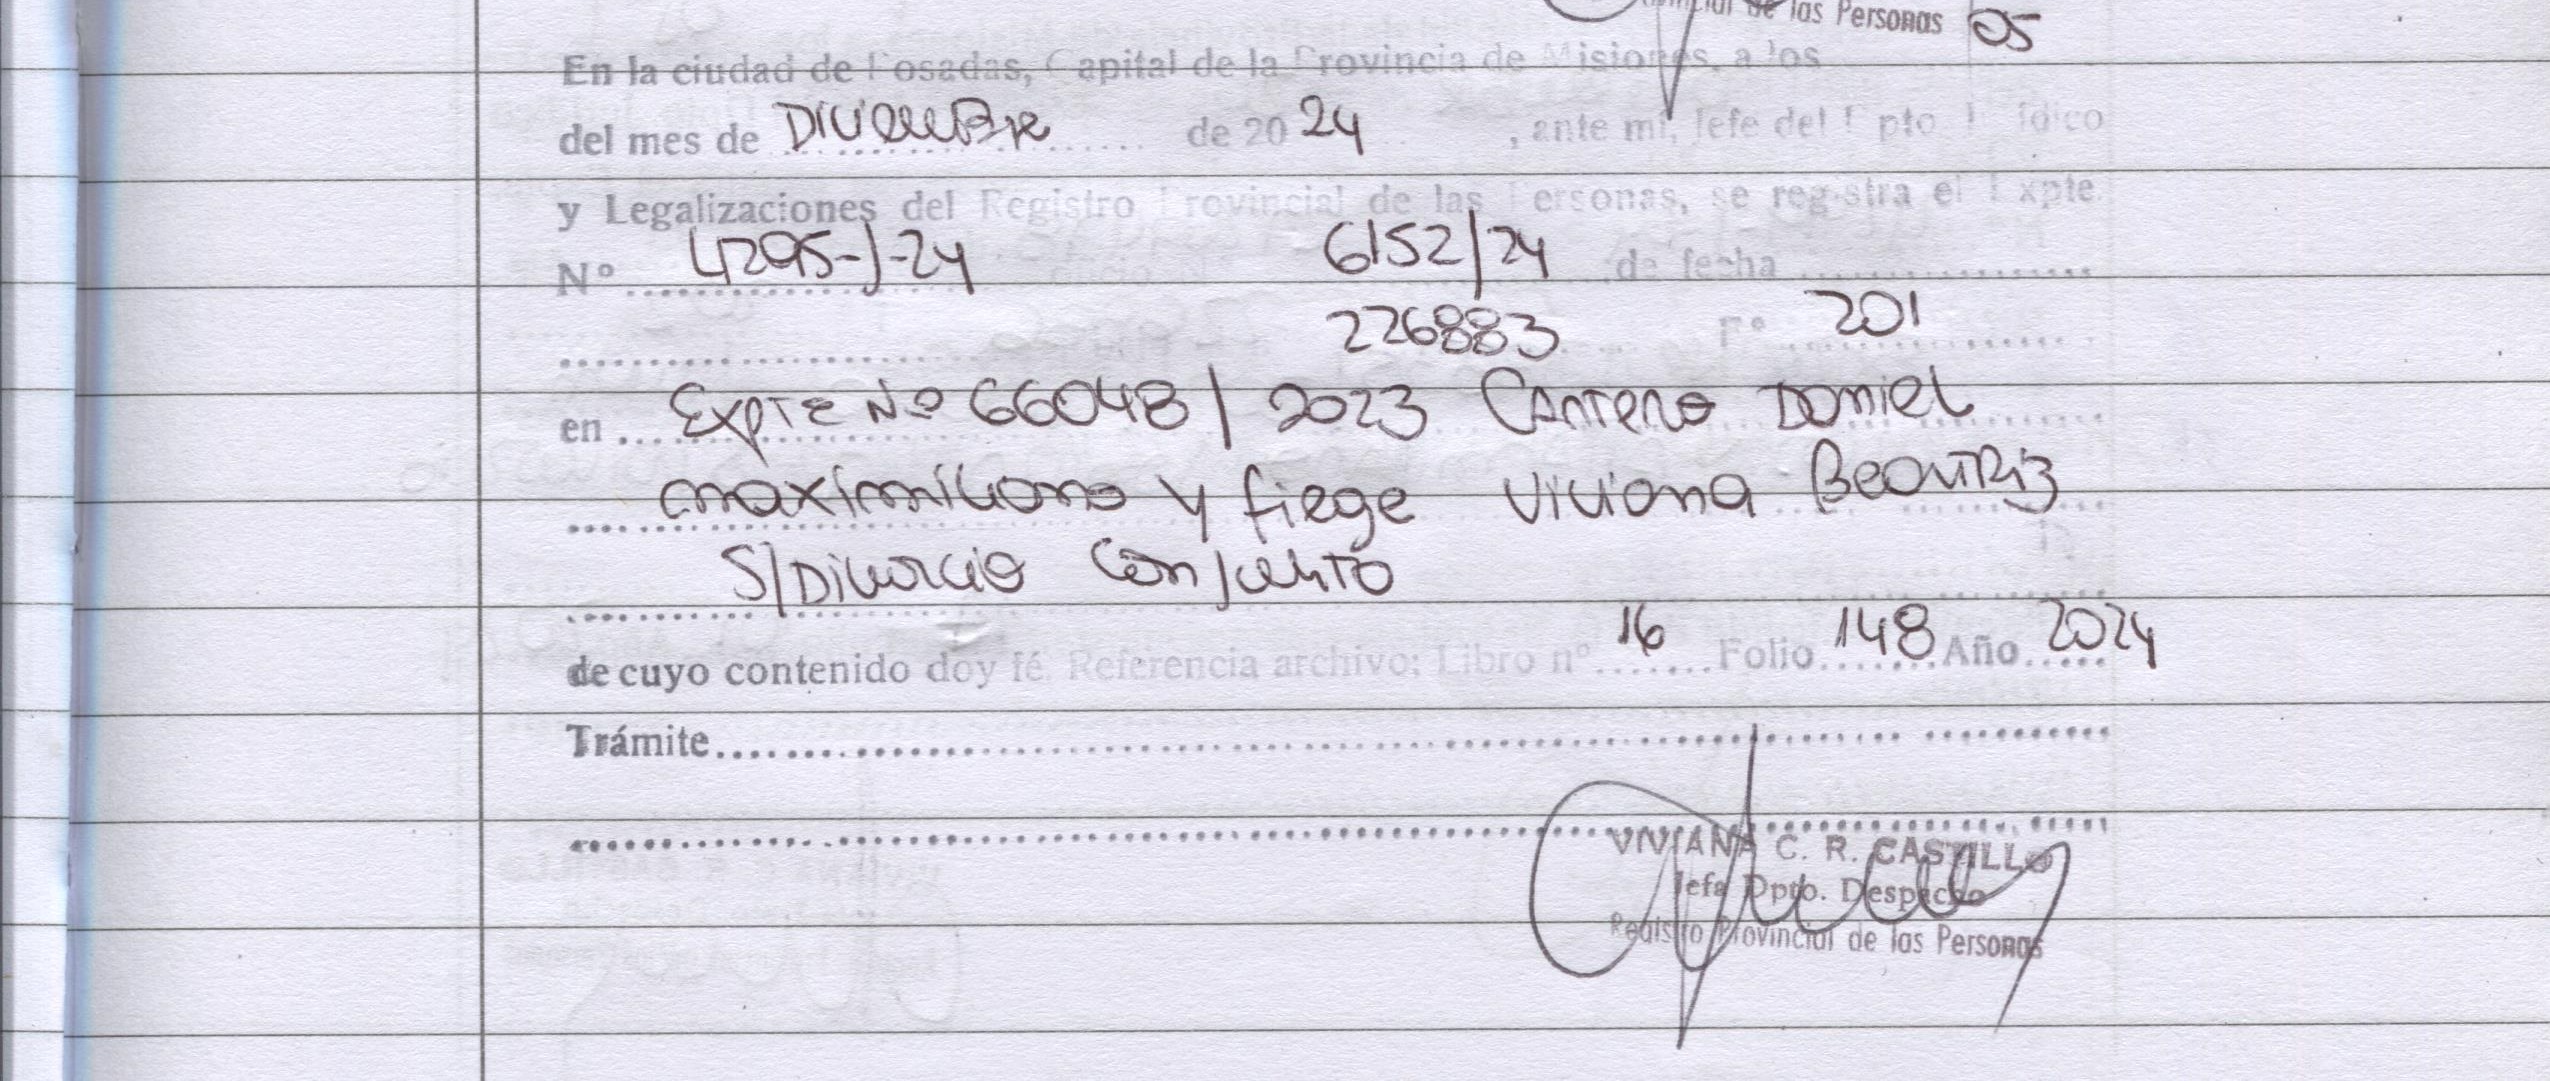 de las Personas
En la ciudad de Posadas, Capital de la Provincia de Misiones, a los 05
del mes de Diciembre de 20 24, ante mí, Jefe del Dpto. Jurídico
y Legalizaciones del Registro Provincial de las Personas, se registra el Expte.
Nº 4295-J-24 6152/24 de fecha
226883 Fº 201
en Expte Nº 66048/2023 Cantero Daniel
maximiliano y fiege Viviana Beatriz
S/Divorcio Conjunto
de cuyo contenido doy fé. Referencia archivo: Libro nº 16 Folio 148 Año 2024
Trámite
VIVIANA C. R. CASTILLO
Jefa Dpto. Despacho
Registro Provincial de las Personas